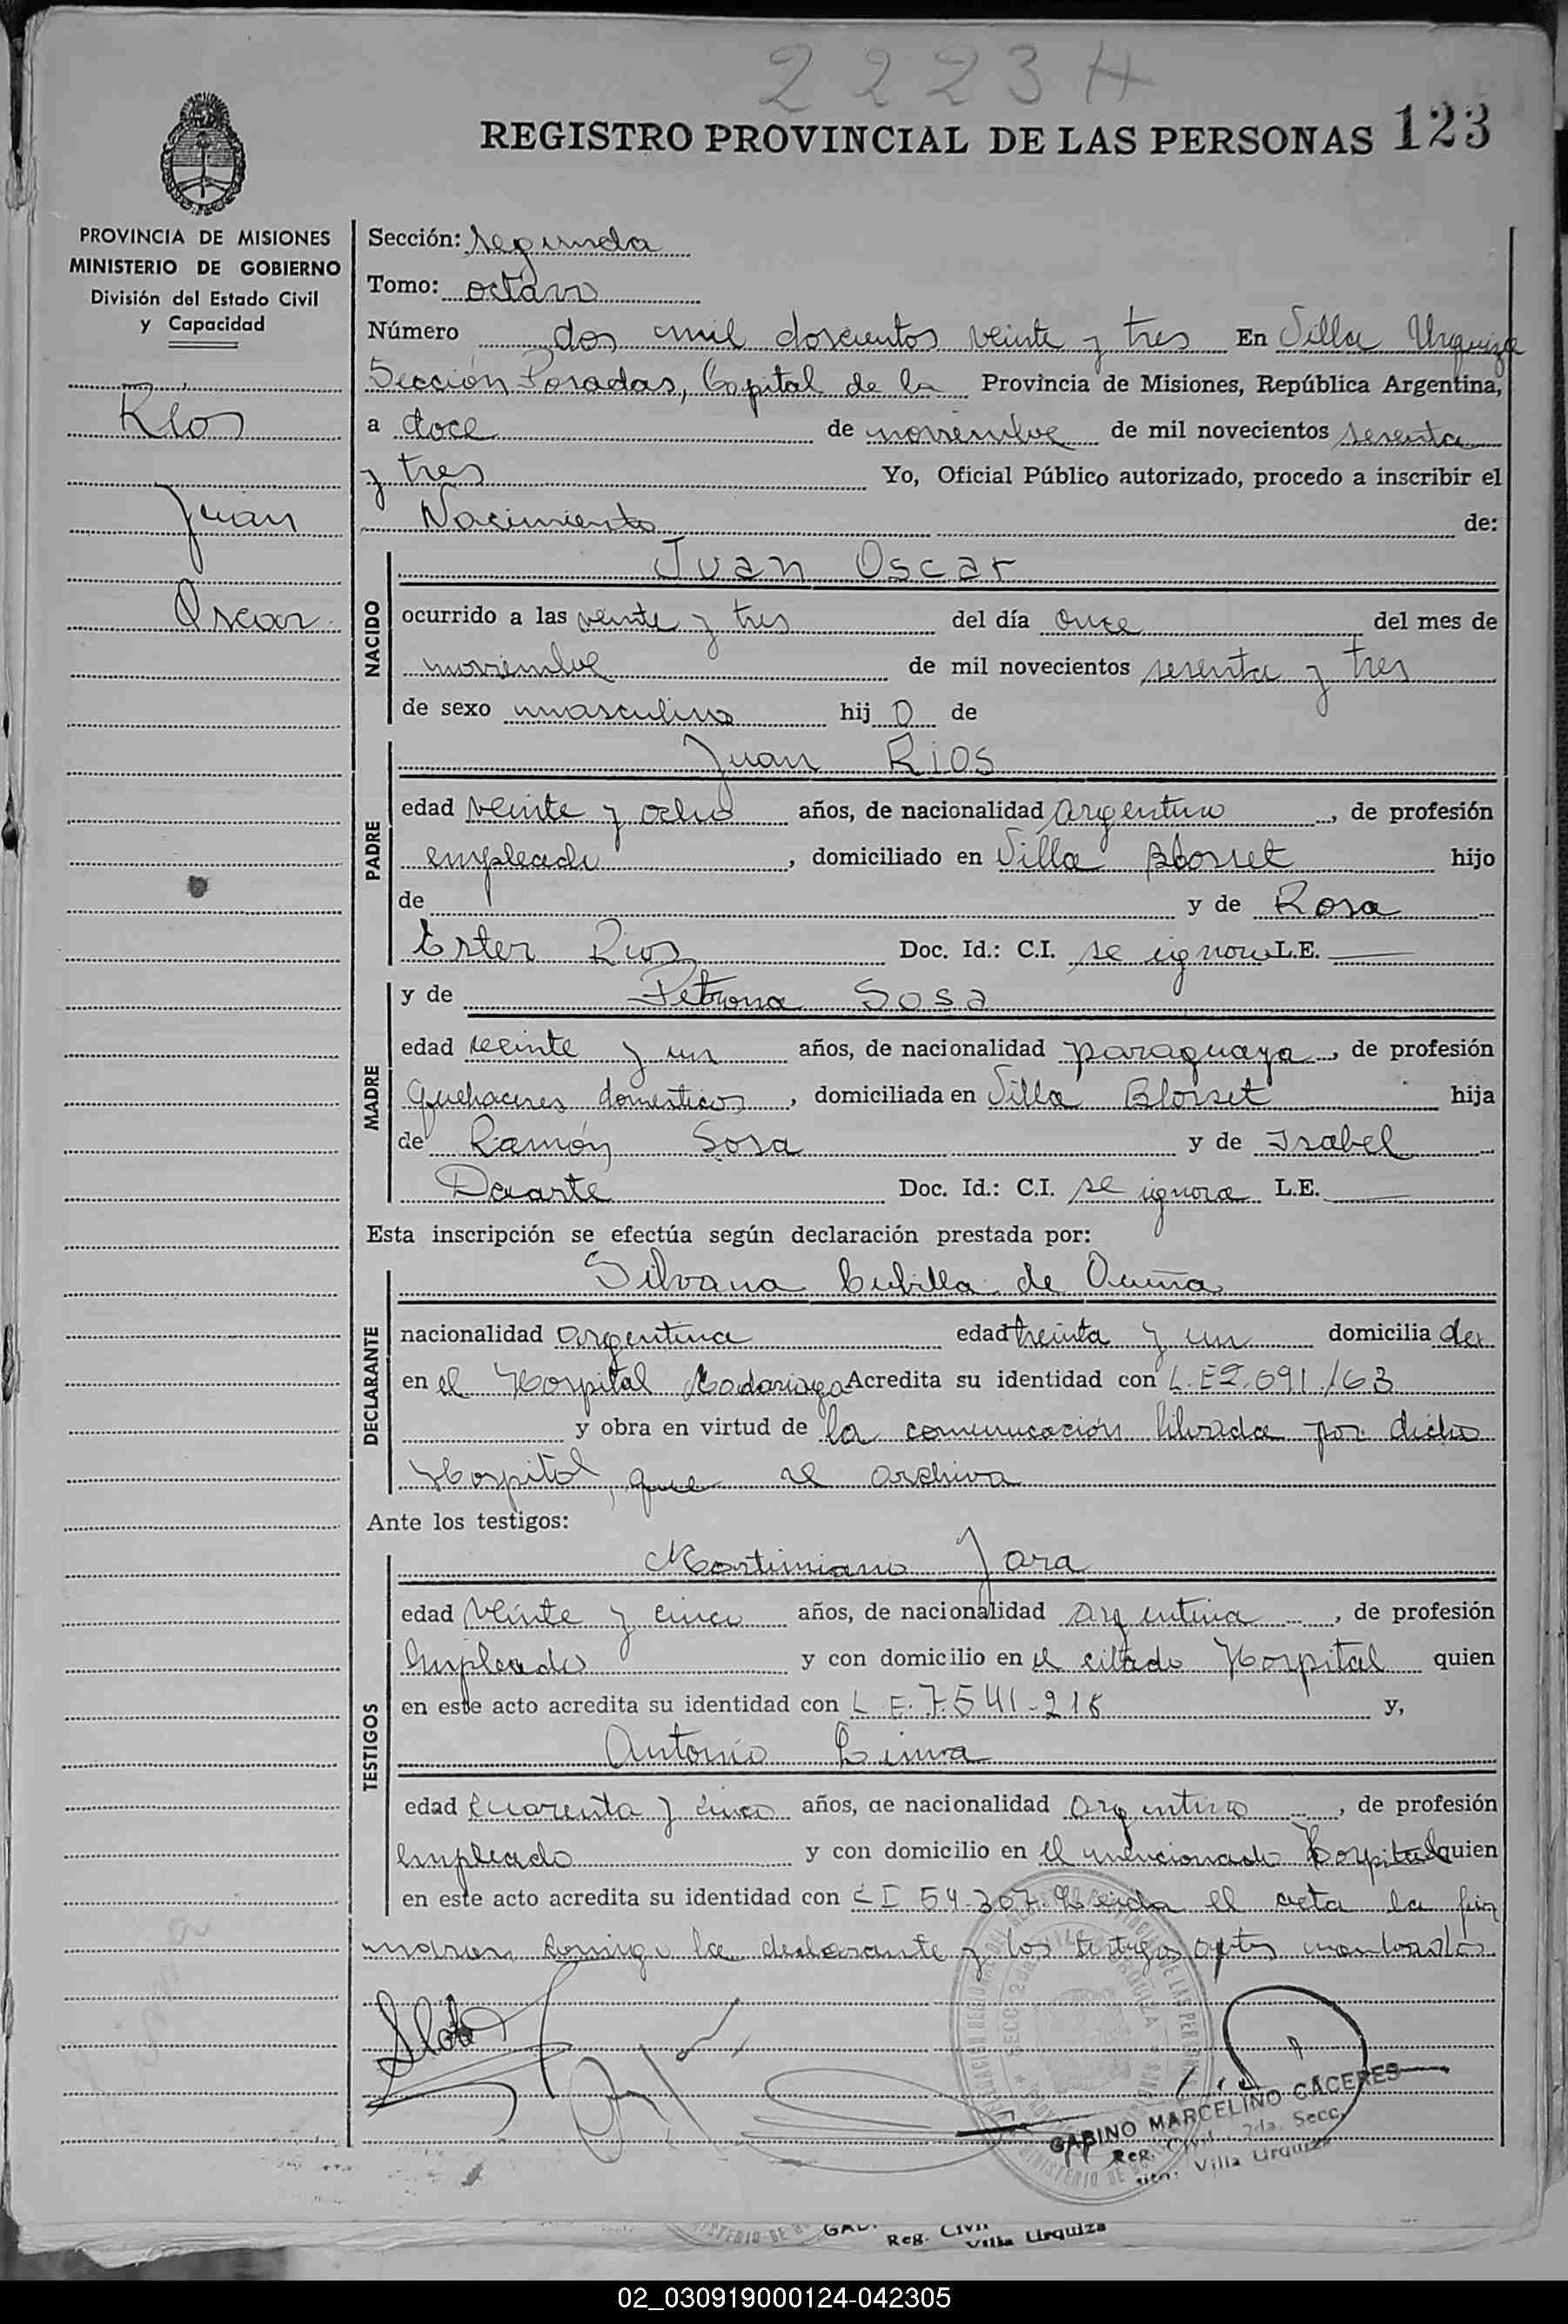 2223 H
REGISTRO PROVINCIAL DE LAS PERSONAS 123
PROVINCIA DE MISIONES
MINISTERIO DE GOBIERNO
División del Estado Civil
y Capacidad
Rios
Juan
Oscar
Sección: segunda
Tomo: octavo
Número dos mil doscientos veinte y tres En Villa Urquiza
Sección Posadas, Capital de la Provincia de Misiones, República Argentina,
a doce de noviembre de mil novecientos sesenta
y tres Yo, Oficial Público autorizado, procedo a inscribir el
Nacimiento de:
NACIDO
Juan Oscar
ocurrido a las veinte y tres del día once del mes de
noviembre de mil novecientos sesenta y tres
de sexo masculino hij o de
PADRE
Juan Rios
edad veinte y ocho años, de nacionalidad argentino, de profesión
empleado, domiciliado en Villa Blosset hijo
de y de Rosa
Ester Rios Doc. Id.: C.I. se ignora L.E. —
MADRE
y de Petrona Sosa
edad veinte y un años, de nacionalidad paraguaya, de profesión
quehaceres domesticos, domiciliada en Villa Blosset hija
de Ramón Sosa y de Isabel
Duarte Doc. Id.: C.I. se ignora L.E. —
Esta inscripción se efectúa según declaración prestada por:
DECLARANTE
Silvana Cubilla de Acuña
nacionalidad argentina edad treinta y un domicilia da
en el Hospital Madariaga Acredita su identidad con L.E 2.691.163
y obra en virtud de la comunicación librada por dicho
Hospital, que se archiva
Ante los testigos:
TESTIGOS
Martiniano Jara
edad veinte y cinco años, de nacionalidad argentina, de profesión
empleado y con domicilio en el citado Hospital quien
en este acto acredita su identidad con L.E. 7.541-218 y,
Antonio
edad cuarenta y cinco años, de nacionalidad argentino, de profesión
empleado y con domicilio en el mencionado Hospital quien
en este acto acredita su identidad con C I 54.307. Leida el acta la fir
maron conmigo la declarante y los testigos
GABINO MARCELINO CACERES
Reg. Civil 2da. Secc.
Villa Urquiza
Reg. Civil
Villa Urquiza
02_030919000124-042305